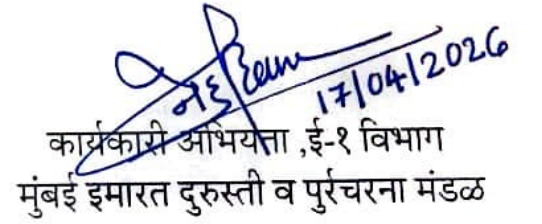 17/04/2026
कार्यकारी अभियंता ,ई-१ विभाग
मुंबई इमारत दुरुस्ती व पुर्रचरना मंडळ